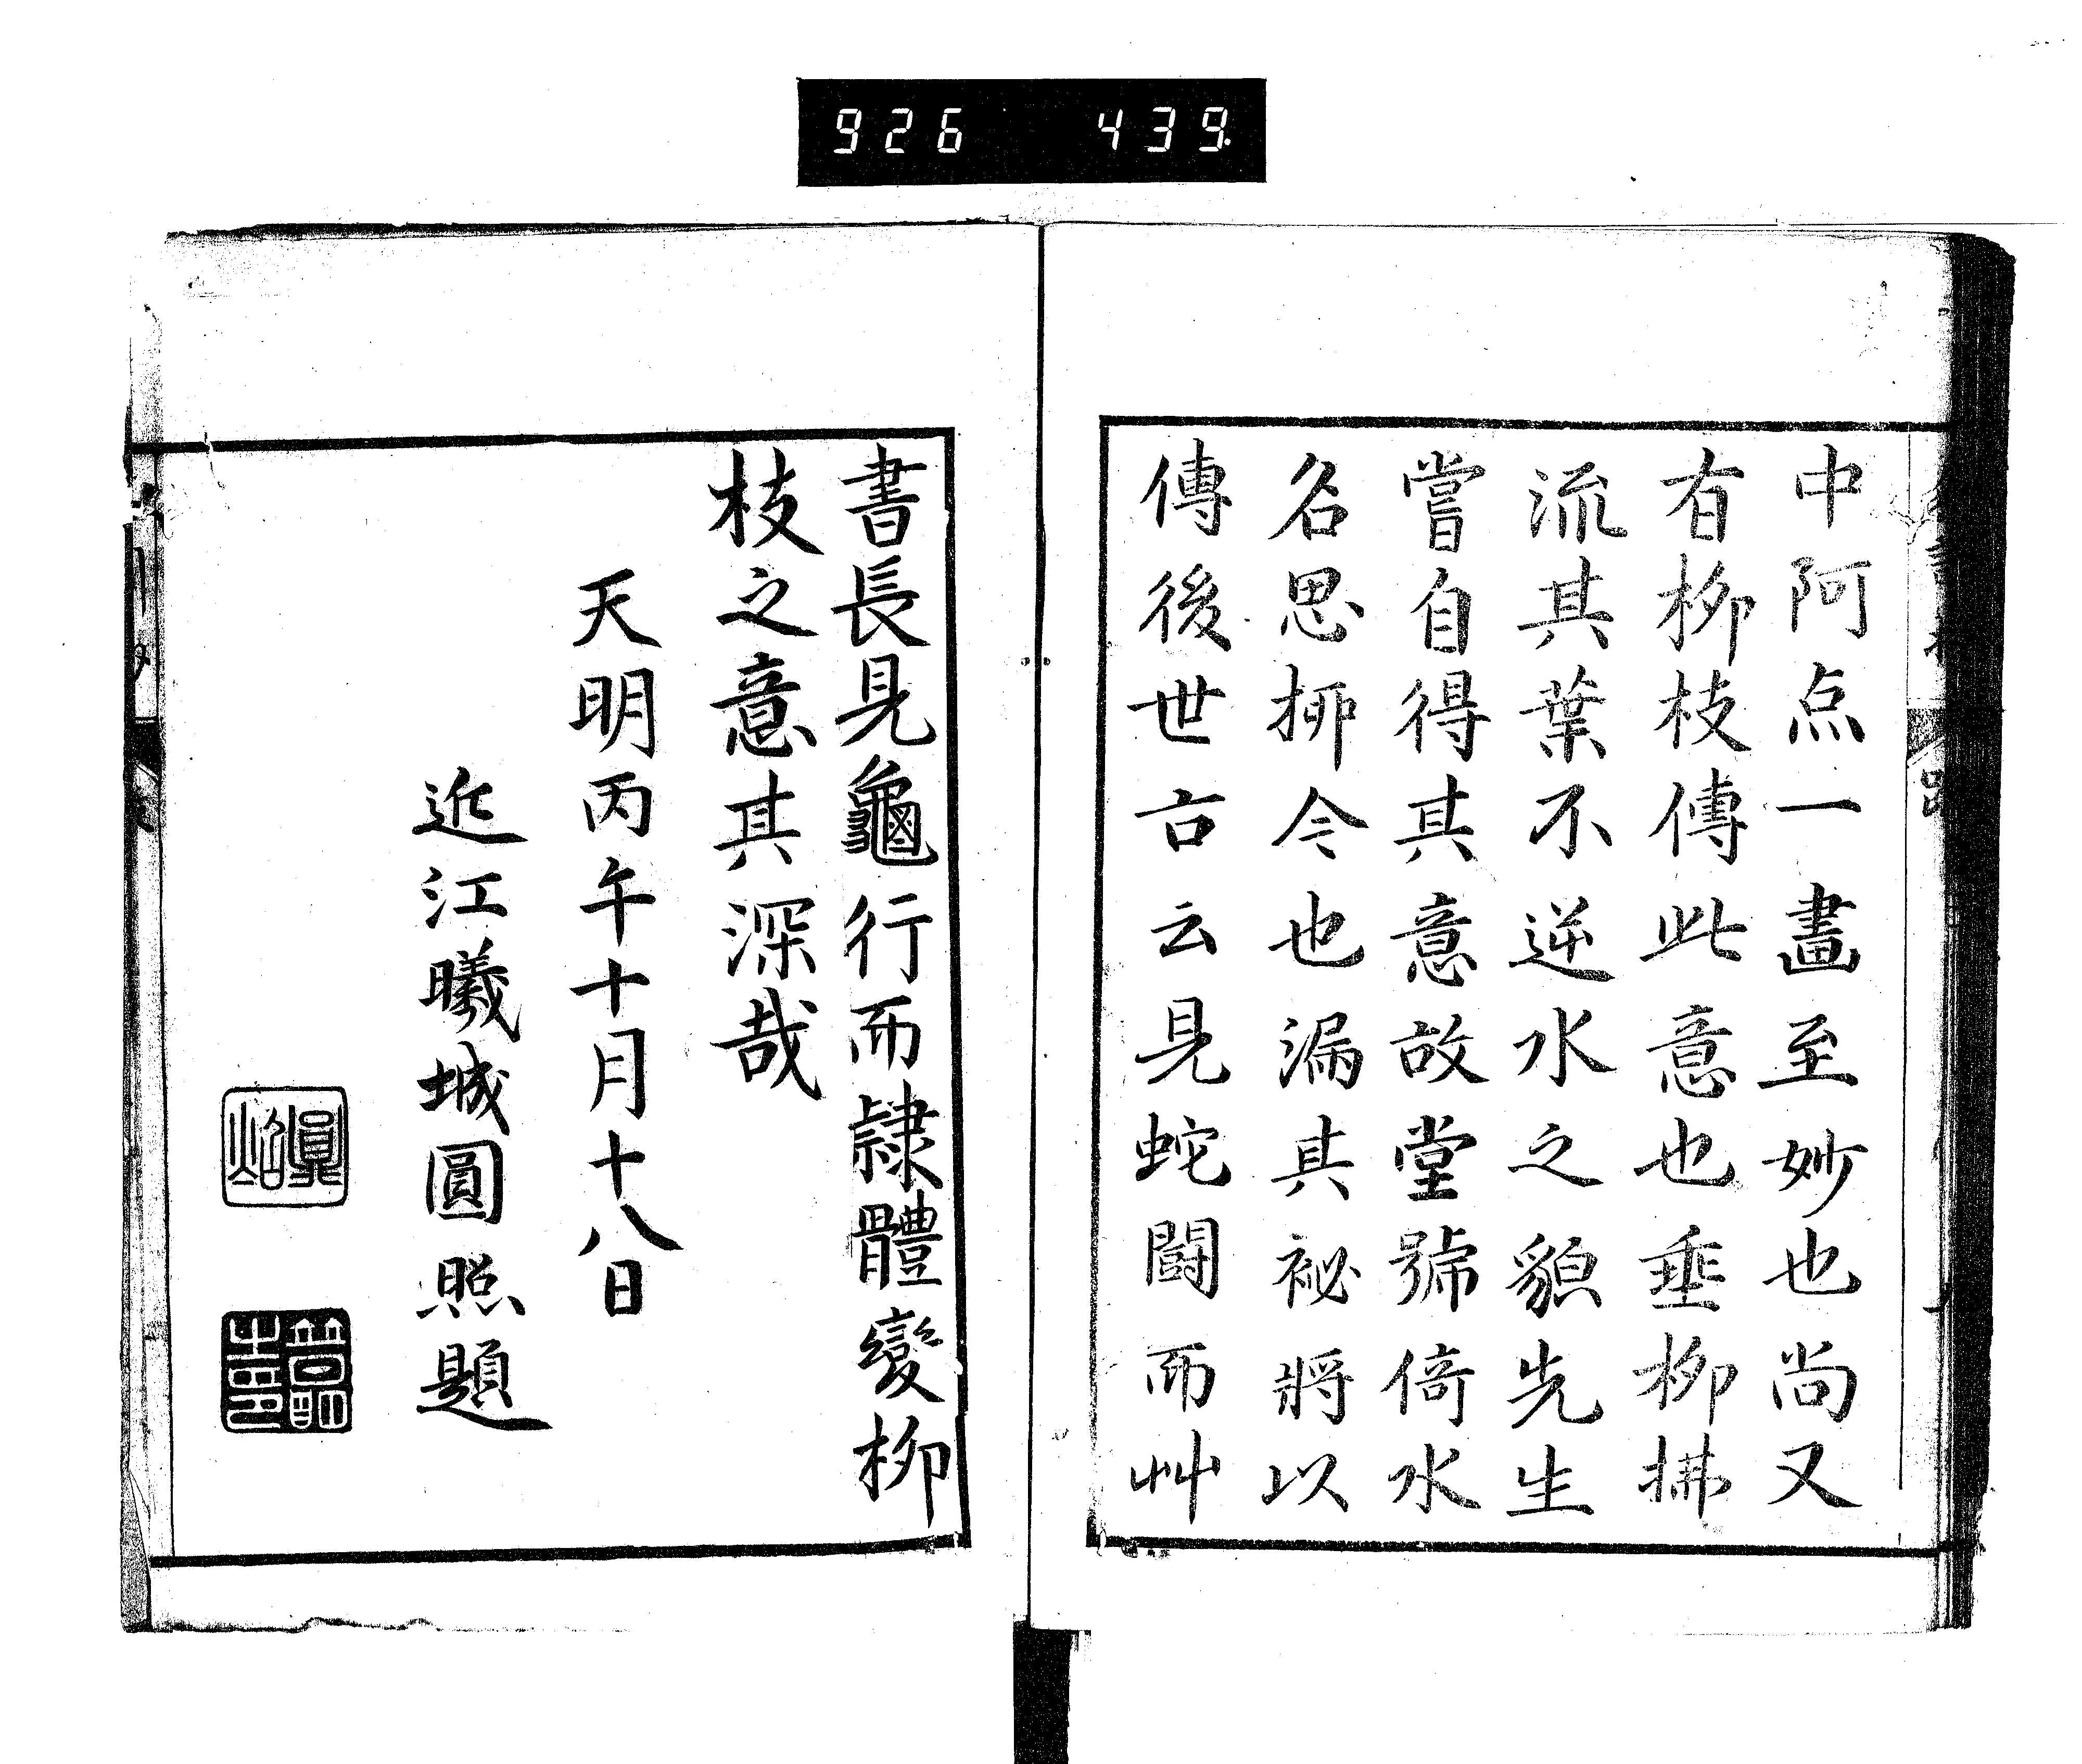 926 439
中阿点一畫至妙也尚又
有柳枝傳此意也垂柳拂
流其葉不逆水之貌先生
嘗自得其意故堂號倚水
名思柳令也漏其祕將以
傳後世古云見蛇鬪而艸
書長見龜行而隷體變柳
枝之意其深哉
天明丙午十月十八日
近江曦城圓照題